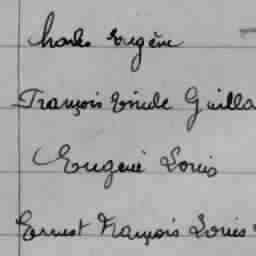 Charles Eugène
François Emile Guilla
Eugène Louis
Ernest François Louis